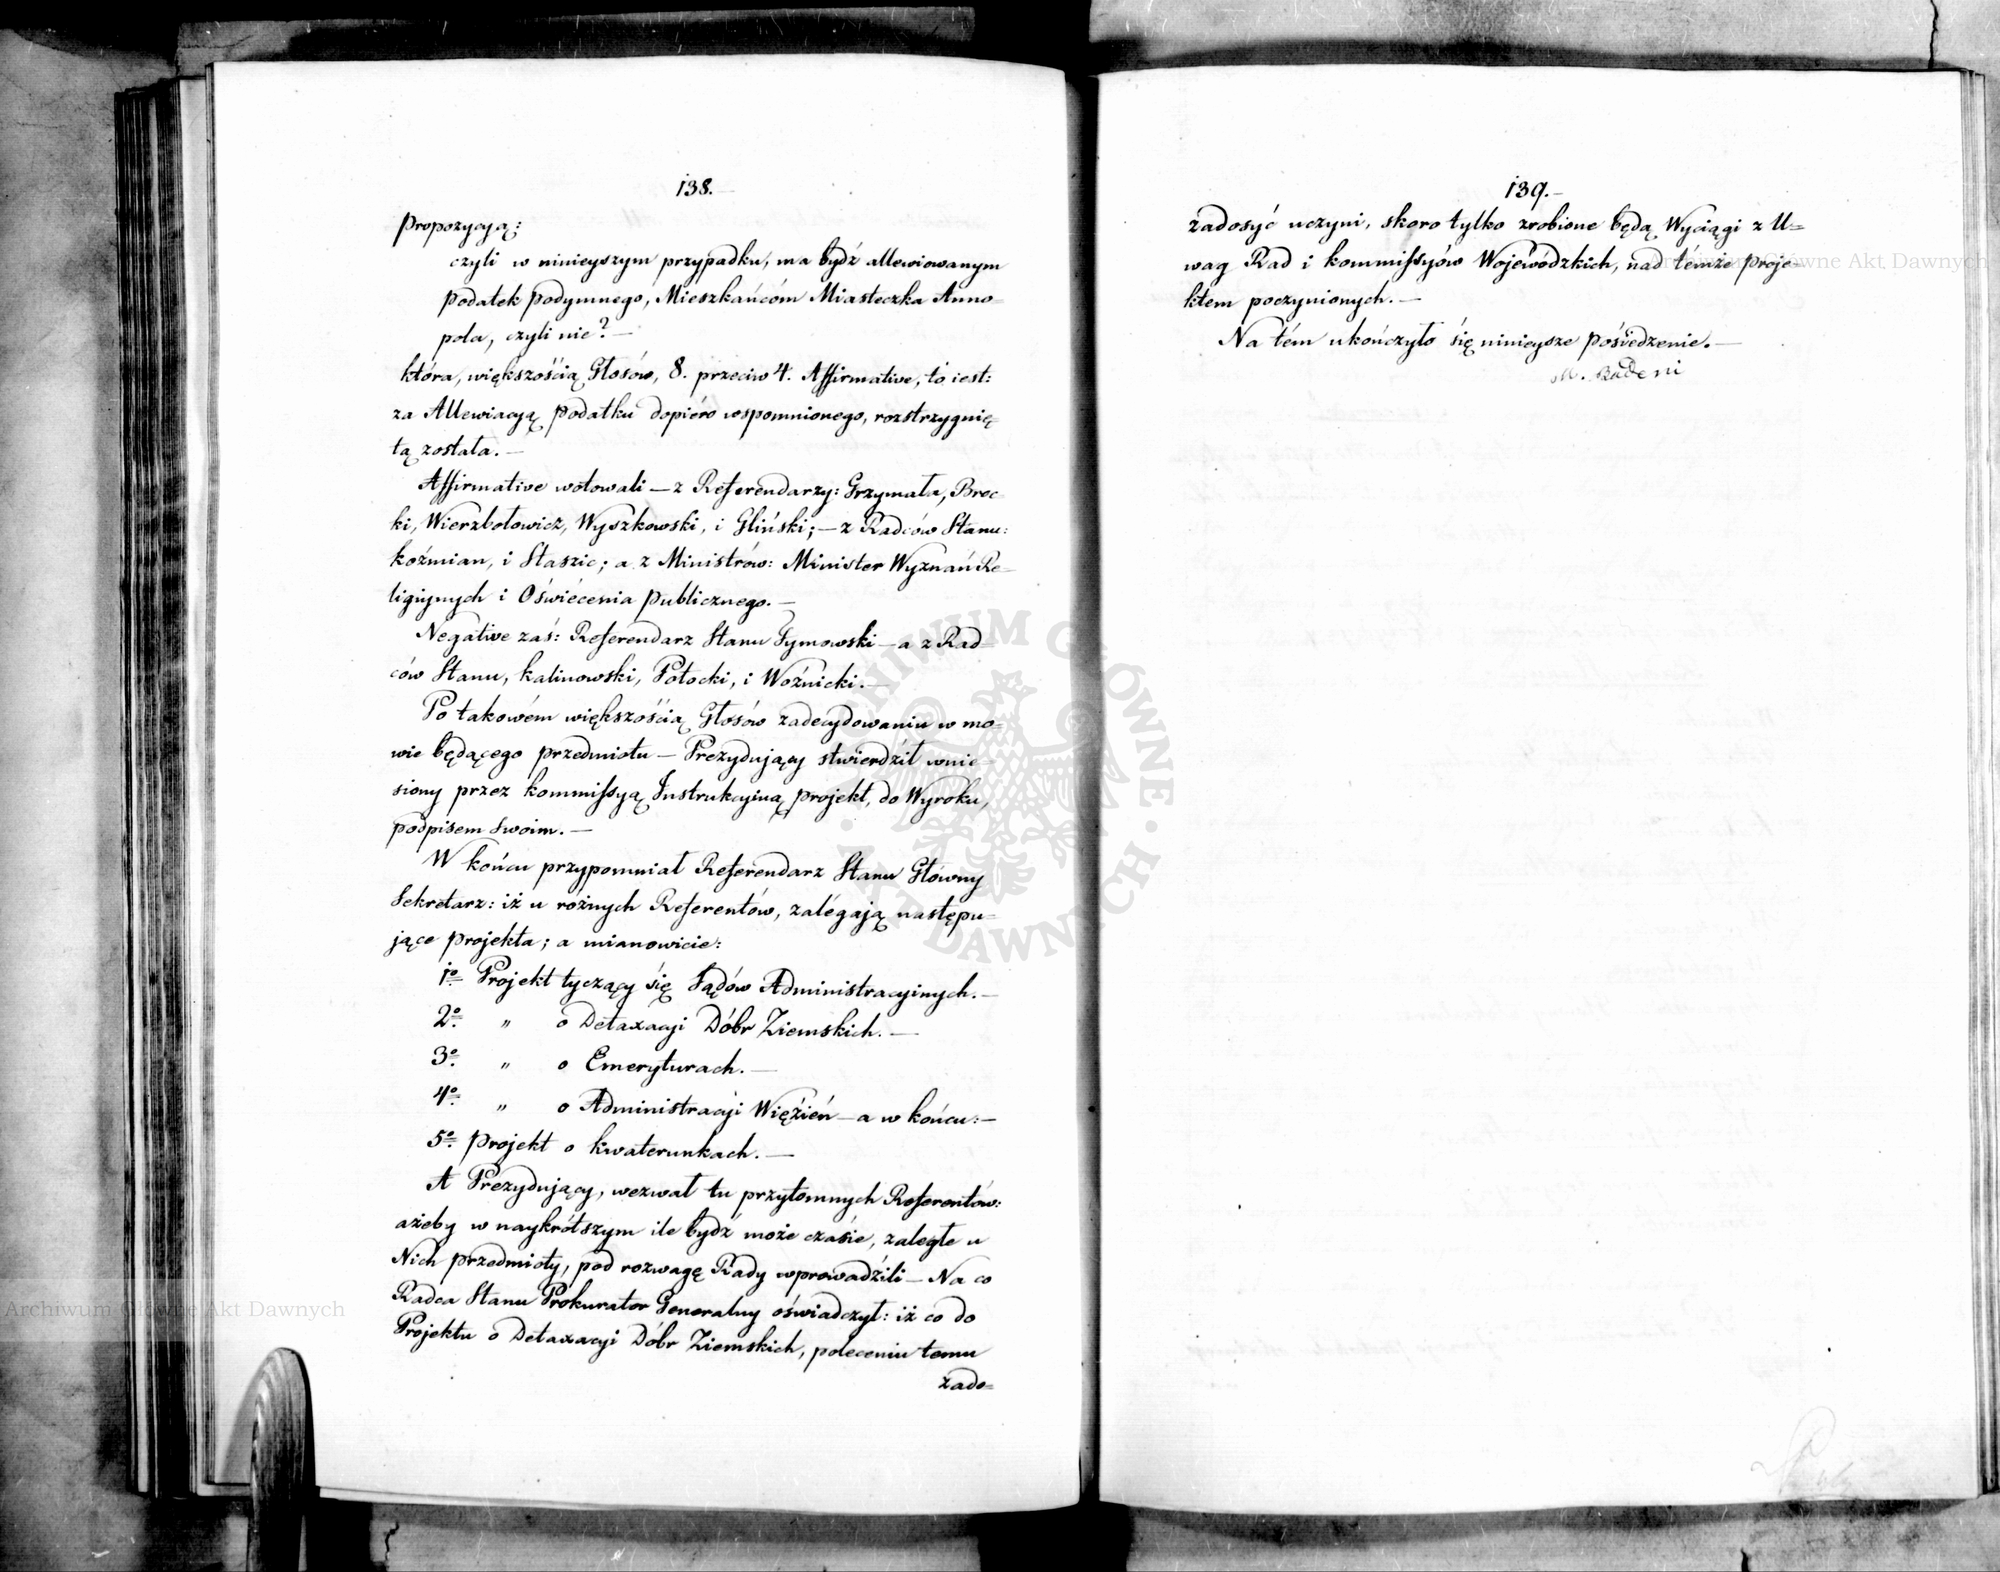 138.
Propozycją:
czyli w ninieyszym przypadku, ma bydź allewiowanym
podatek podymnego, Mieszkańcóm Miasteczka Anno=
pola, czyli nie? —
która, większością Głosów, 8. przeciw 4. Affirmative, to iest:
za Allewiacyą podatku dopiéro wspomnionego, rozstrzygnię
tą została. —
Affirmative wotowali — z Referendarzy: Grzymała, Broc=
ki, Wierzbołowicz, Wyszkowski, i Gliński; — z Radców Stanu:
Koźmian, i Staszic; a z Ministrów: Minister Wyznań Re=
ligiynych i Oświécenia publicznego. —
Negative zaś: Referendarz Stanu Tymowski — a z Rad=
ców Stanu, Kalinowski, Potocki, i Woźnicki. —
Po takowém większością Głosów zadecydowaniu w mo=
wie będącego przedmiotu — Prezydujący stwierdził wnie=
siony przez Kommissyą Instrukcyiną projekt, do Wyroku,
podpisem swoim. —
W końcu przypomniał Referendarz Stanu Główny
Sekretarz: iż u różnych Referentów, zalégają następu=
jące projekta; a mianowicie:
1o Projekt tyczący się Sądów Administracyinych. —
2o. " o Detaxacyi Dóbr Ziemskich. —
3o. " o Emeryturach. —
4o. " o Administracyi Więźień — a w końcu: —
5o. projekt o kwaterunkach. —
A Prezydujący, wezwał tu przytomnych Referentów:
ażeby w naykrótszym ile bydź może czasie, zaległe u
Nich przedmioty, pod rozwagę Rady wprowadźili — Na co
Radca Stanu Prokurator Generalny oświadczył: iż co do
Projektu o Detaxacyi Dóbr Ziemskich, poleceniu temu
zado=
139. —
zadosyć uczyni, skoro tylko zrobione będą Wyciągi z U=
wag Rad i Kommissyów Wojewódzkich, nad témże proje=
ktem poczynionych. —
Na tém ukończyło się ninieysze pośiedzenie. —
M. Badeni
Archiwum Główne Akt Dawnych
Archiwum Główne Akt Dawnych
ARCHIWUM GŁÓWNE · AKT DAWNYCH ·